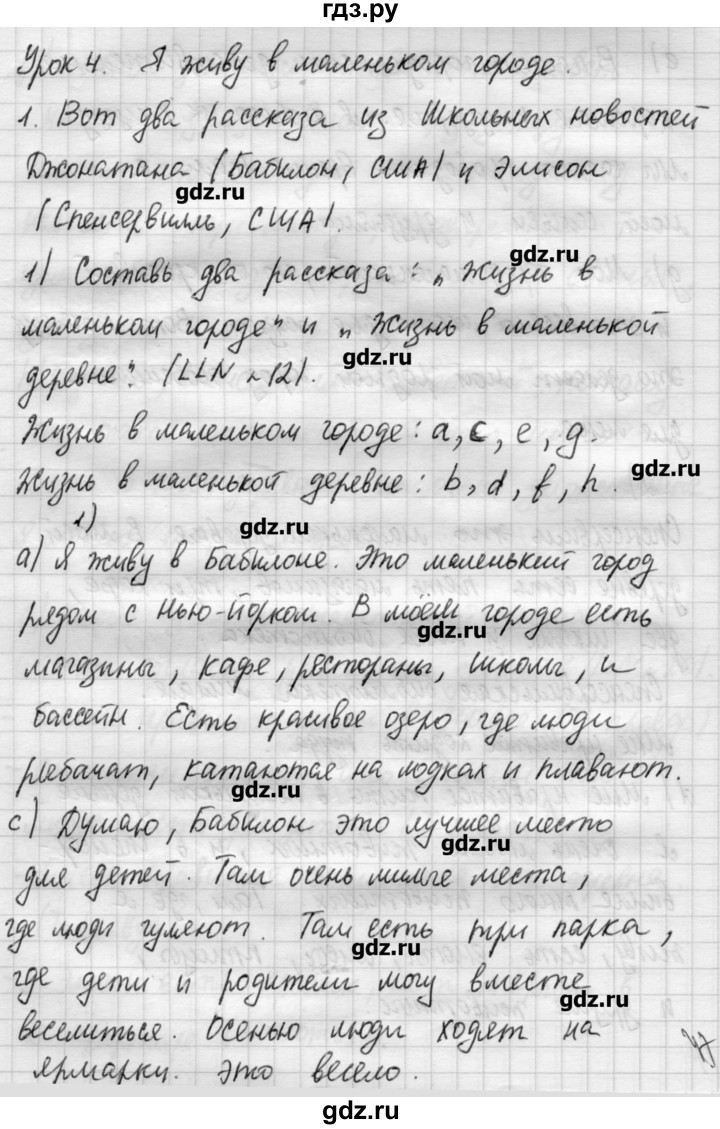 гдз.ру
Урок 4. Я живу в маленьком городе.
1. Вот два рассказа из Школьных новостей
Джонатана (Бабилон, США) и Элисон
gdz.ru
(Спенсервилль, США).
gdz.ru
1) Составь два рассказа: „Жизнь в
маленьком городе" и „Жизнь в маленькой
gdz.ru
деревне". (LLN ~12).
Жизнь в маленьком городе: a, c, e, g.
gdz.ru
Жизнь в маленькой деревне: b, d, f, h.
1)
gdz.ru
a) Я живу в Бабилоне. Это маленький город
рядом с Нью-Йорком. В моём городе есть
gdz.ru
магазины, кафе, рестораны, школы, и
бассейн. Есть красивое озеро, где люди
рыбачат, катаются на лодках и плавают.
gdz.ru
c) Думаю, Бабилон это лучшее место
gdz.ru
для детей. Там очень милые места,
где люди гуляют. Там есть три парка,
gdz.ru
где дети и родители могу вместе
gdz.ru
веселиться. Осенью люди ходят на
ярмарки. Это весело.
gdz.ru